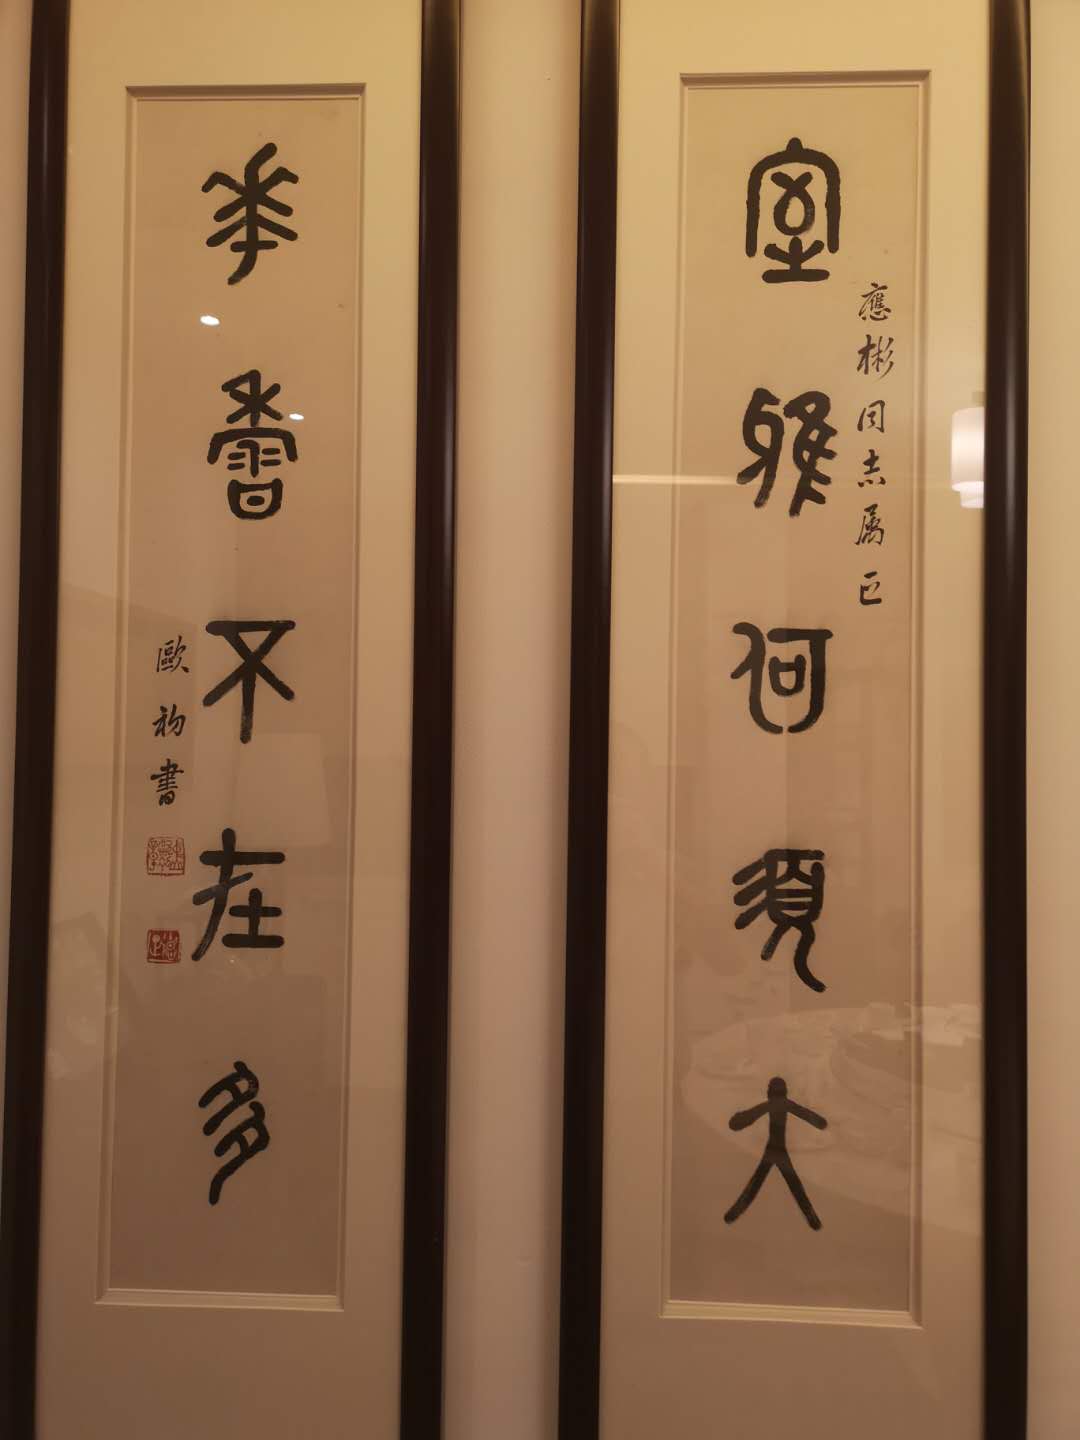 室雅何須大
應彬同志属正
華香不在多
歐初書